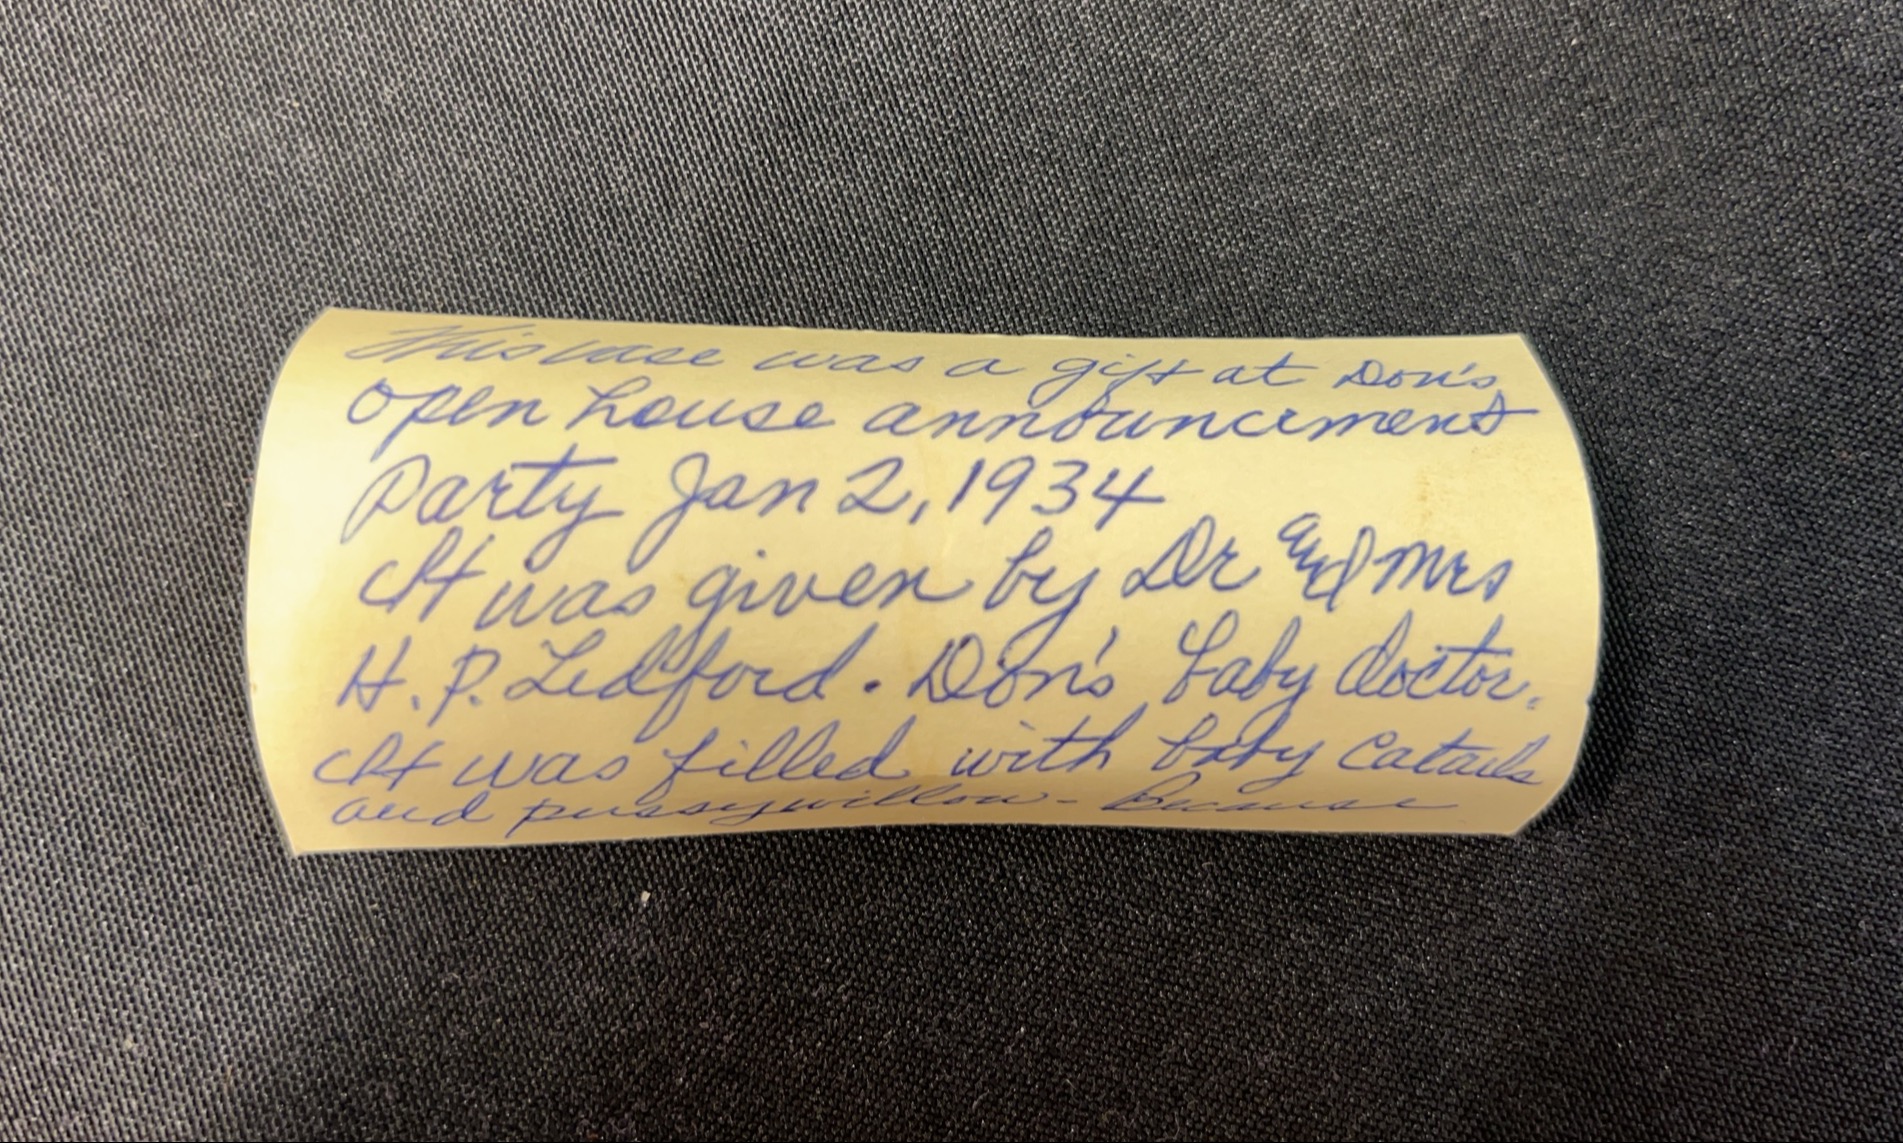 This vase was a gift at Don's
open house announcement
Party Jan 2, 1934
It was given by Dr and Mrs
H. P. Ledford. Don's baby doctor.
It was filled with baby Catails
and pussywillow - Because